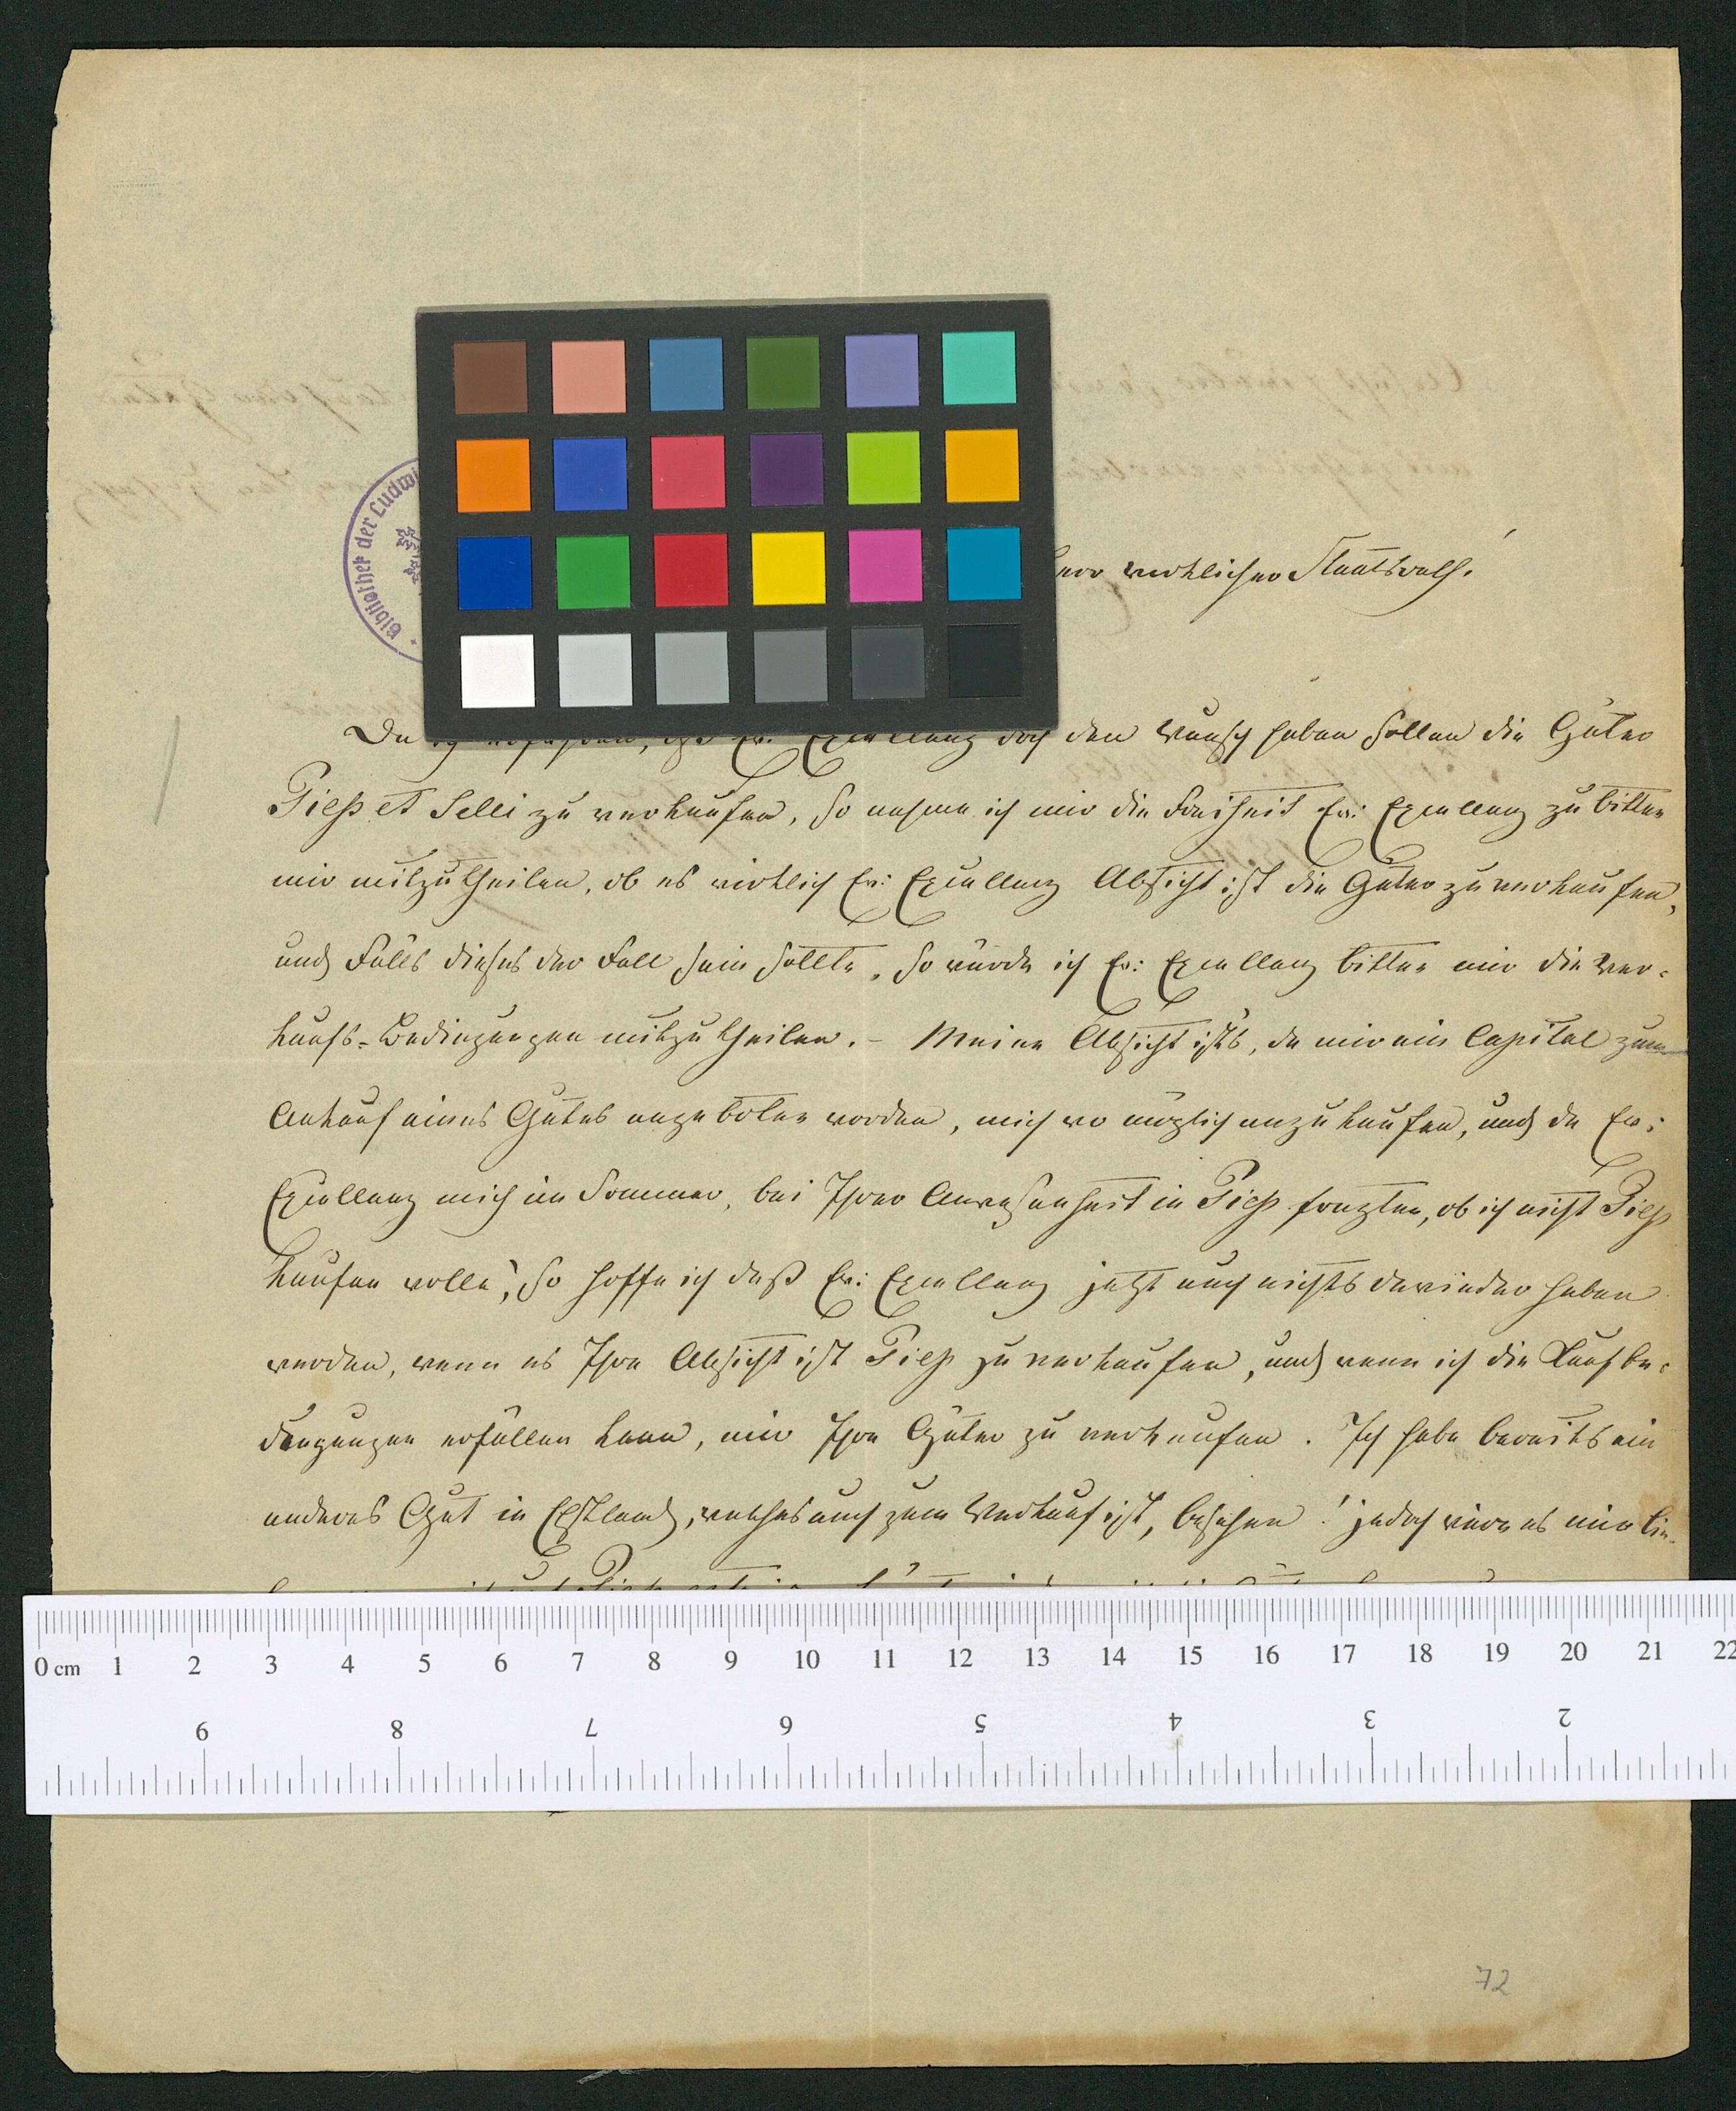 Bibliothek der Ludwi
wirklicher Staatsrath!
Da ich erfahren, daß Ew: Excellenz doch den Wunsch haben sollen die Güter
Piep et Selli zu verkaufen, so nehme ich mir die Freiheit Ew: Excellenz zu bitten
mir mitzutheilen, ob es wirklich Ew: Excellenz Absicht ist die Güter zu verkaufen,
und Falls dieses der Fall sein sollte, so würde ich Ew: Excellenz bitten mir die Ver-
kaufs-Bedingungen mitzutheilen. – Meine Absicht ist's, da mir ein Capital zum
Ankauf eines Gutes angeboten worden, mich wo möglich anzukaufen, und da Ew:
Excellenz mich im Sommer, bei Ihrer Anwesenheit in Piep fragten, ob ich nicht Piep
kaufen wolle, so hoffe ich daß Ew: Excellenz jetzt auch nichts dawieder haben
werden, wenn es Ihre Absicht ist Piep zu verkaufen, und wenn ich die Kaufbe-
dingungen erfüllen kann, mir Ihre Güter zu verkaufen. Ich habe bereits ein
anderes Gut in Ehstland, welches auch zum Verkauf ist, besehen! jedoch wäre es mir lie-
0 cm 1 2 3 4 5 6 7 8 9 10 11 12 13 14 15 16 17 18 19 20 21 22
9 8 7 6 5 4 3 2
72